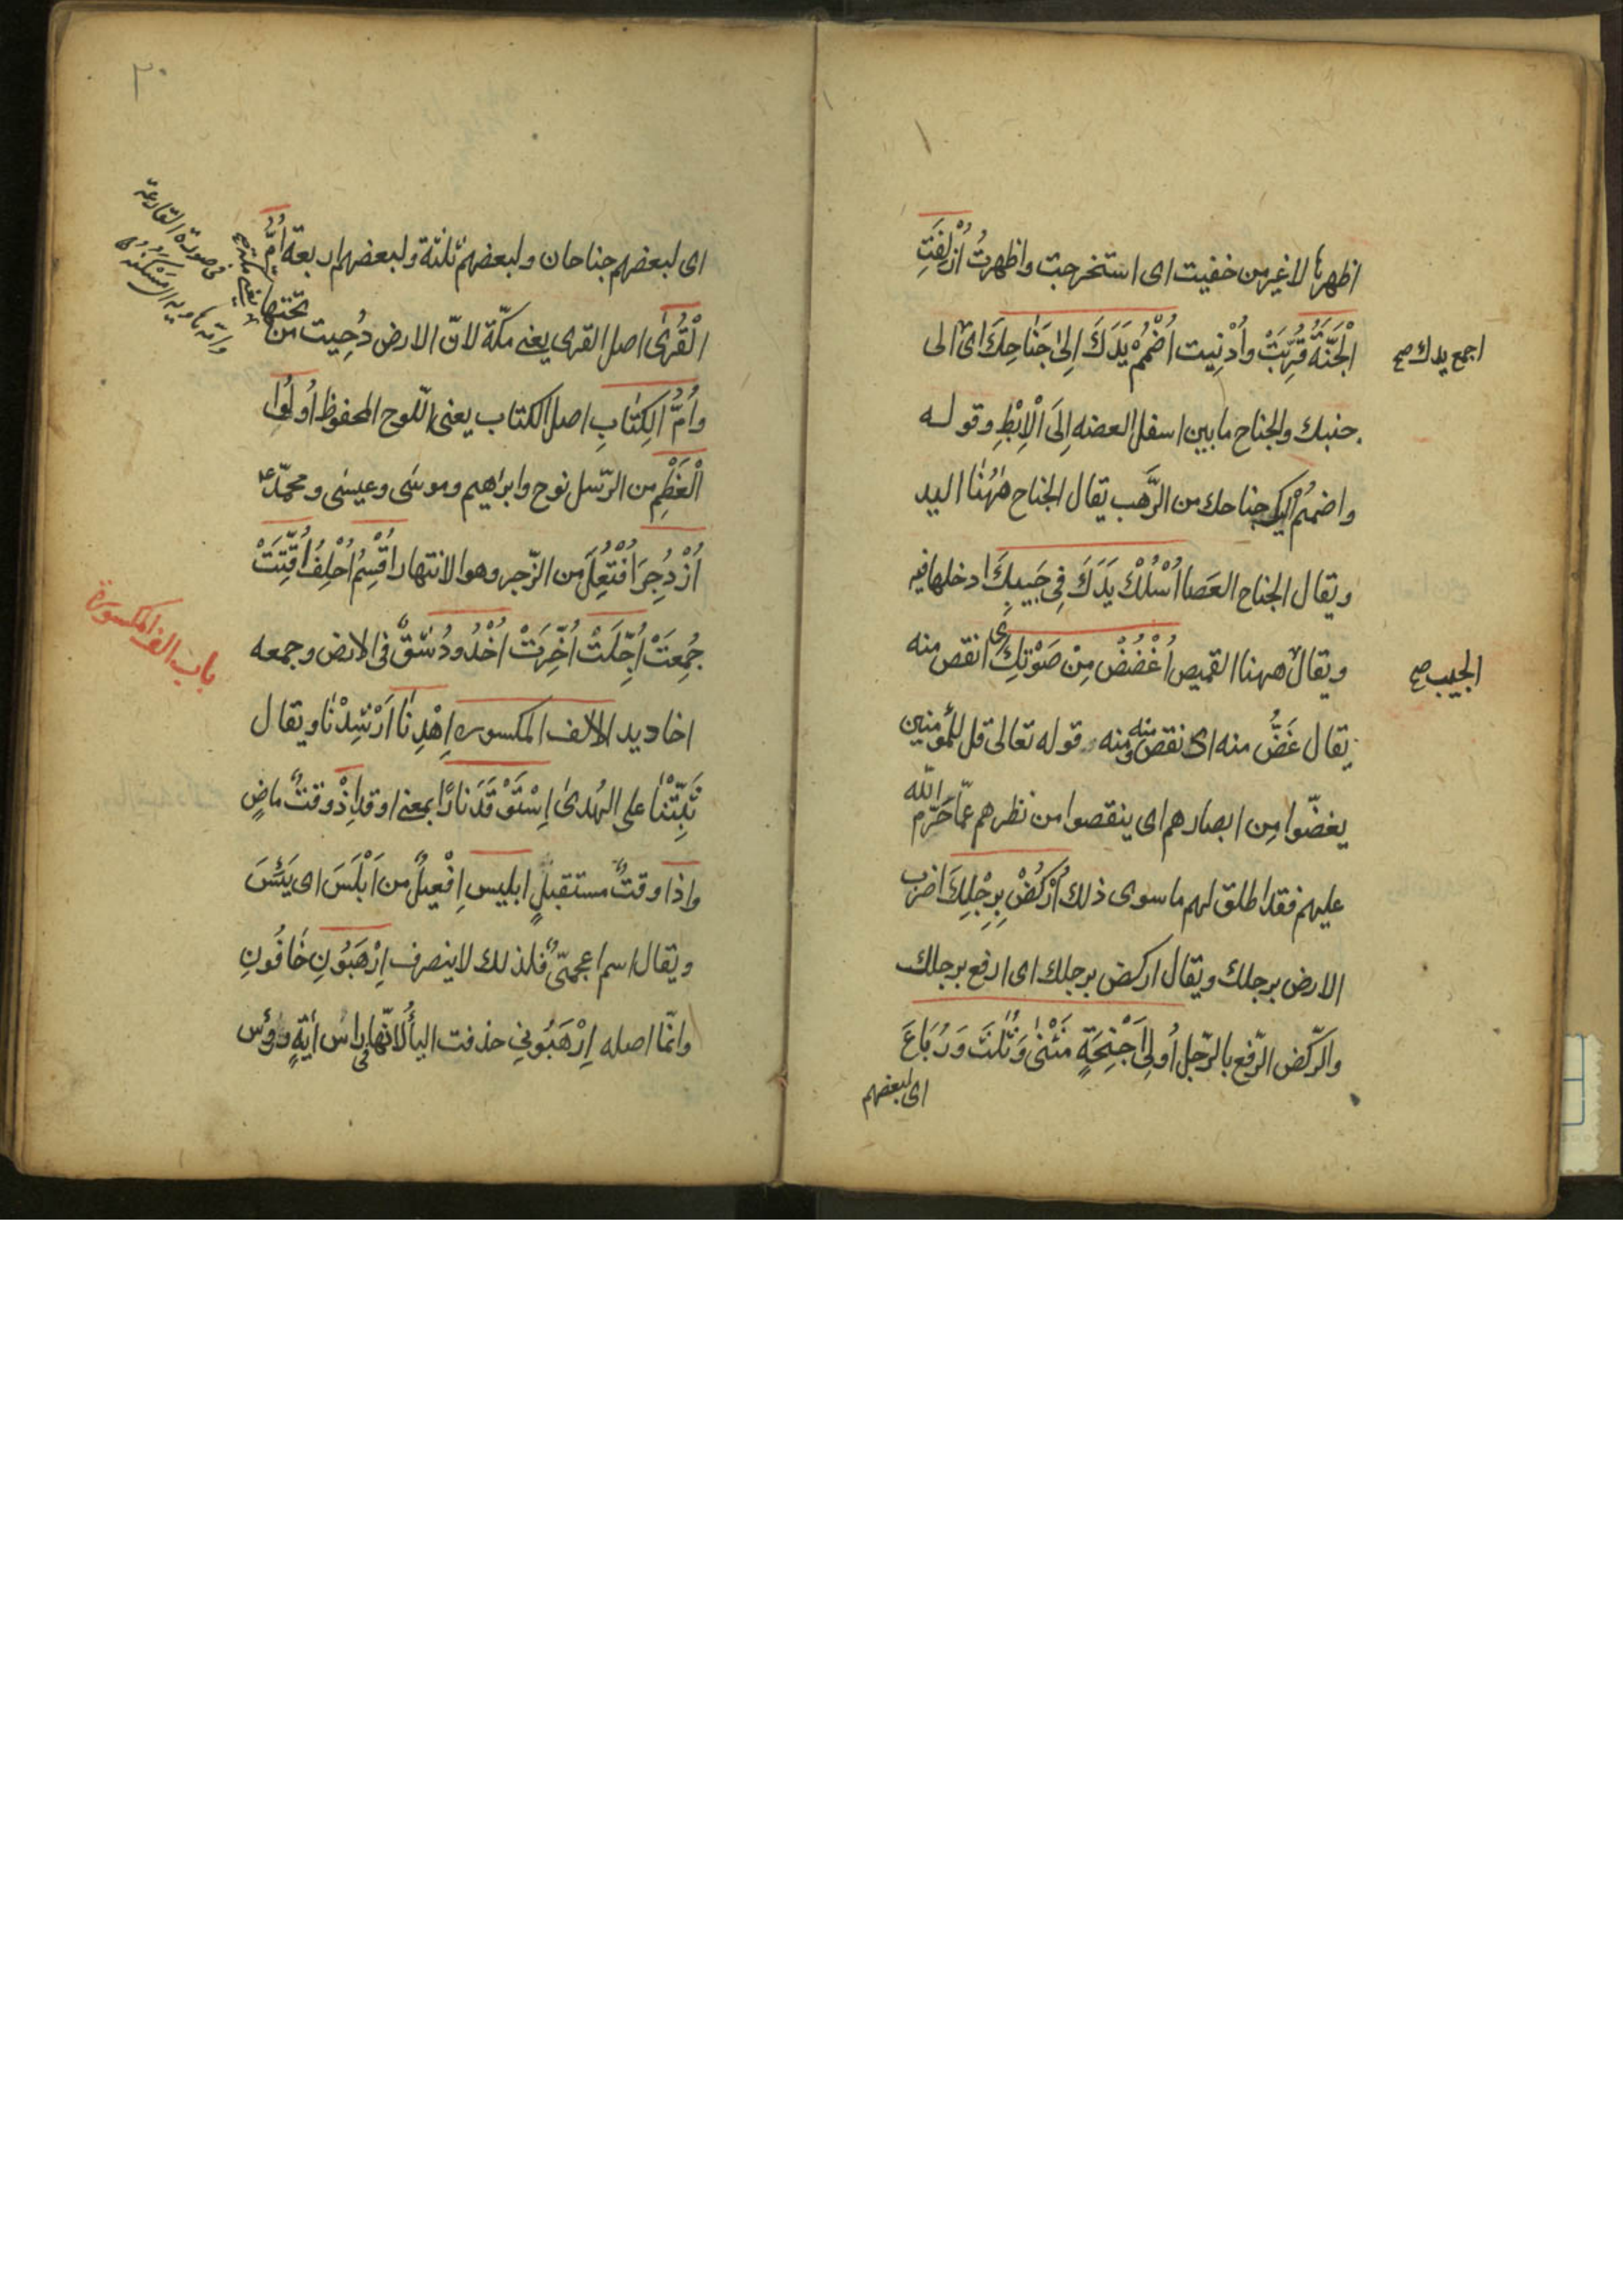 اظهرها لا غير من خفيت اى استخرجت واظهرت اُزْلِفَتِ
الْجَنَّةُ قُرِّبَتْ وأُدْنِيت اُضْمُمْ يَدَكَ اِلىٰ جَنَاحِكَ اى الى
اجمع يدك صح
جنبك والجناح ما بين اسفل العضد اِلَى الْاِبْطِ وقوله
واضمُمْ اليك جناحك من الرَّهب يقال الجناح هٰهُنَا اليد
ويقال الجناح العَصا اُسْلُكْ يَدَكَ فِى جَيبِكَ ادخلها فيه
ويقال ههنا القميص اُغْضُضْ مِنْ صَوْتِكَ اى انقص منه
الجيب صح
يقال غَضَّ منه اى نقص منه ومنه قوله تعالى قل للمؤمنين
يغضّوا مِن ابصارهم اى ينقصوا من نظرهم عمّا حَرّم الله
عليهم فقد اطلق لهم ما سوى ذلك اُرْكُضْ بِرِجْلِكَ اضرب
الارض برجلك ويقال اركض برجلك اى ارفع برجلك
والرّكض الرّفع بالرّجل اُولِى اَجْنِحَةٍ مَثْنىٰ وَثُلٰثَ وَرُبَاعَ
اى لبعضهم
٣٠
اى لبعضهم جناحان ولبعضهم ثلثة ولبعضهم اربعة اُمَّ
الْقُرىٰ اصل القرى يعنى مكّة لانّ الارض دُحِيت من تحتها
فى صورة القارعة
وامّه هاوية اى مَسْكَنُه
وأُمُّ الكِتٰابِ اصل الكتاب يعنى اللّوح المحفوظ اُولُوا
الْعَزْمِ من الرّسل نوح وابراهيم وموسى وعيسى ومحمّد ع
اُزْدُجِرَ اُفْتُعِلَ من الزّجر وهو الانتهار اُقْسِمُ اُحْلِفُ اُقِّتَتْ
جُمِعَتْ اُجِّلَتْ اُخِّرَتْ اُخْدُود شَقٌّ فى الارض وجمعه
باب الف المكسورة
اخاديد الالف المكسوره اِهْدِنَا اَرْشِدْنَا ويقال
ثَبِّتْنٰا على الهُدىٰ اِسْتَوْقَدَ نارًا بمعنى اوقد اِذْ وقتٌ ماضٍ
واذا وقتٌ مستقبلٍ ابليس اِفْعِيلٌ من اَبْلَسَ اى يَئِسَ
ويقال اسم اعجمىّ فلذلك لا ينصرف اِرْهَبُونِ خَافُونِ
وانّما اصله اِرْهَبُونِى حذفت اليأ لانّها فى راس اٰيةٍ ورؤس